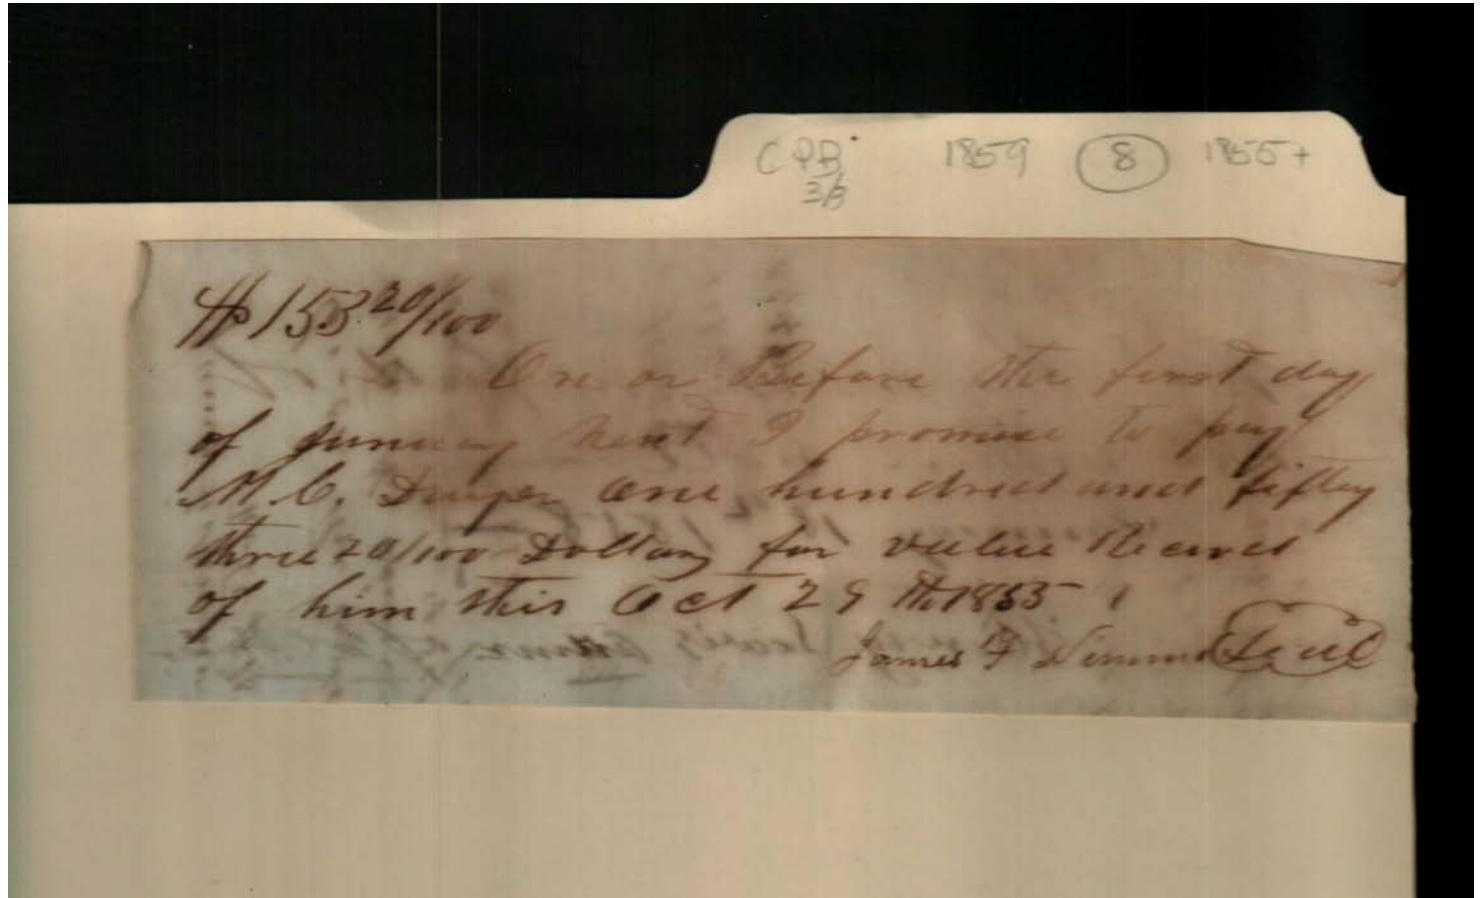 CPB 1859 8 1855+
3/3
$153 20/100
On or Before the first day
of January next I promise to pay
M. C. one hundred and fifty
three 20/100 Dollars for value Received
of him this Oct 29 th 1855
James F Seal